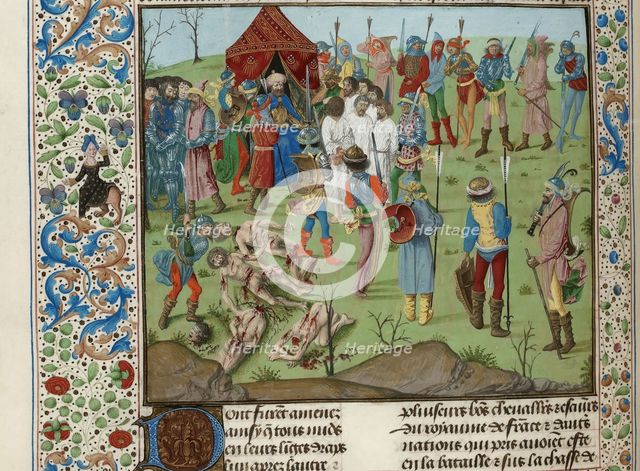 Heritage
Heritage
Heritage
Heritage
Heritage
Heritage
Dont furent amenez
ainsy q̃ tous nudz
en leurs linges draps
lun apres lautre
plusieurs bõs cheualli̾s & escui̾rs
du royaume de france & dautr̃s
nations qui pris auoiẽt este
en la bataille & sus la chasse de